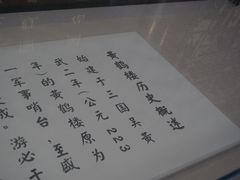 黄鹤楼历史概述
始建于三国吴黄
武二年(公元223
年)的黄鹤楼原为
军事哨台,至盛
成。游必于